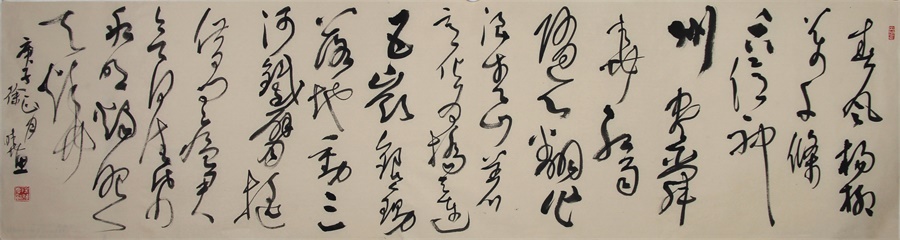 春风杨柳
万千條
六亿神
州尽舜
尧红雨
随心翻作
浪青山着
意化为橋天连
五嶺銀锄
落地動三
河鐵臂摇
借问瘟君
欲何往纸
船明烛照
天烧
庚子正月
徐